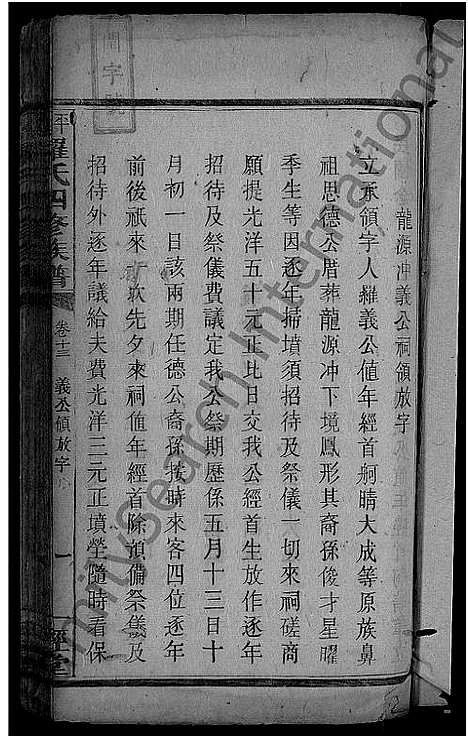 龍源冲義公祠領放字
立承領字人羅義公值年經首桐晴大成等原族鼻
祖思德公厝葬龍源冲下境鳳形其裔孫俊才星曜
季生等因逐年掃墳須招待及祭儀一切來祠磋商
願提光洋五十元正比日交我公經首生放作逐年
招待及祭儀費議定我公祭期歷係五月十三日十
月初一日該兩期任德公裔孫按時來客四位逐年
前後祇來一次先夕來祠值年經首除預備祭儀及
招待外逐年議給夫費光洋三元正墳塋隨時看保
平 羅氏四修族譜 卷十三 義公領放字 一
開字號
FamilySearch International